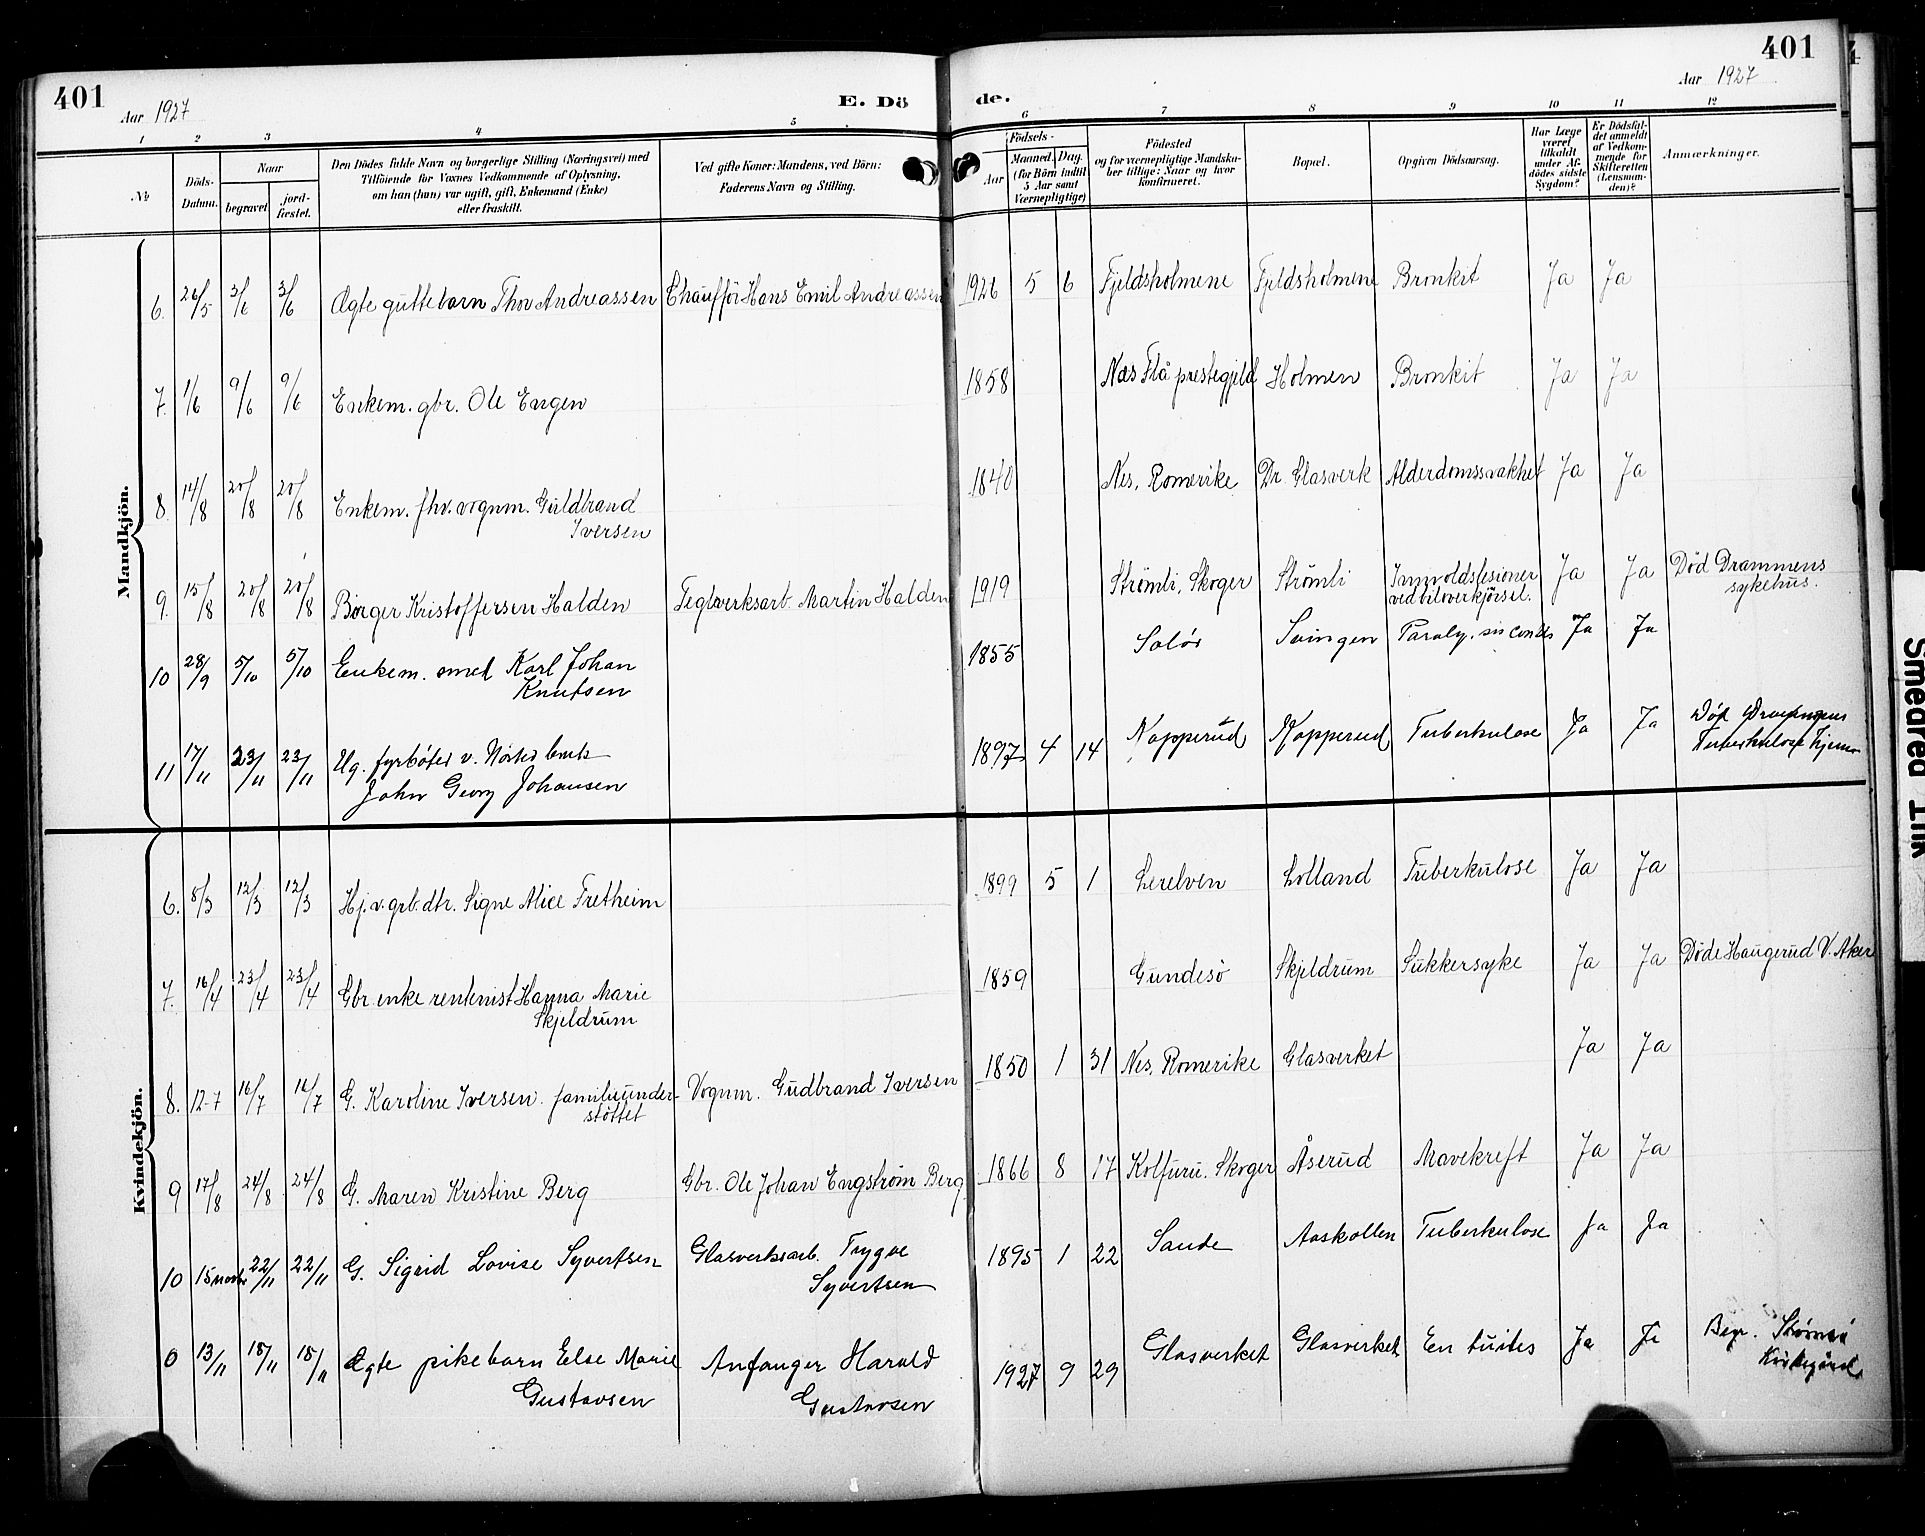 401
Aar 1927
E. Dö
de.
401
Aar 1927
1 2 3 4 5 6 7 8 9 10 11 12
№
Döds-Datum.
Naar
begravet.
jord-fæstet.
Den Dödes fulde Navn og borgerlige Stilling (Næringsvei) med
Tilföiende for Voxnes Vedkommende af Oplysning,
om han (hun) var ugift, gift, Enkemand (Enke)
eller fraskilt.
Ved gifte Koner: Mandens, ved Börn:
Faderens Navn og Stilling.
Födsels-
Aar
Maaned. Dag.
(for Börn indtil
5 Aar samt
Værnepligtige)
Födested
og for værnepligtige Mandska-
ber tillige: Naar og hvor
konfirmeret.
Bopæl.
Opgiven Dödsaarsag.
Har Læge
været
tilkaldt
under Af-
dødes sidste
Sygdom?
Er Dödsfal-
det anmeldt
af Vedkom-
mende for
Skifteretten
(Lensman-
den)?
Anmærkninger.
Mandkjön.
6. 26/5 3/6 3/6 Ægte guttebarn Thor Andreassen Chauffør Hans Emil Andreassen 1926 5 6 Fjeldsholmene Fjeldsholmene Bronkit Ja Ja
7. 1/6 9/6 9/6 Enkem. gbr. Ole Engen 1858 Næs Flå prestegjeld Holmen Bronkit Ja Ja
8. 14/8 20/8 20/8 Enkem. fhv. vognm. Guldbrand
Iversen
1840 Nes, Romerike Dr. Glasverk Alderdomssvakhet Ja Ja
9. 15/8 20/8 20/8 Borger Kristoffersen Halden Teglverksarb. Martin Halden 1919 Strömli, Skoger Strömli Innvoldslesioner
ved biloverkjörsel.
Ja Ja Død Drammens
sykehus.
10 28/9 5/10 5/10 Enkem. smed Karl Johan
Knutsen
1855 Solør Svingen Ja Ja
11 17/11 23/11 23/11 Ug. fyrbøter v.
John Georg Johansen
1897 4 14 Kopperud Kopperud Tuberkulose Ja Ja Død
Tuberkulosehjem
Kvindekjön.
6. 8/3 12/3 12/3 Hj.v. grb. dtr. Signe Alice Fretheim 1899 5 1 Lerelven Lolland Tuberkulose Ja Ja
7. 16/4 23/4 23/4 Gbr. enke rentenist Hanna Marie
Skjeldrum
1859 Gundesø Skjeldrum Sukkersyke Ja Ja Døde Haugerud V. Aker
8. 12-7 16/7 16/7 G. Karoline Iversen. familieunder-
støttet
Vognm. Gudbrand Iversen 1850 1 31 Nes, Romerike Glasverket Ja Ja
9 17/8 24/8 24/8 G. Maren Kristine Berg Gbr. Ole Johan Engstrøm Berg 1866 8 17 Kolfuru. Skoger Åserud Mavekreft Ja Ja
10 15 novbr 22/11 22/11 G. Sigrid Lovise Syvertsen Glasverksarb. Trygve
Syvertsen
1895 1 22 Sande Aaskollen Tuberkulose Ja Ja
0 13/11 18/11 18/11 Ægte pikebarn Else Marie
Gustavsen
Anfanger Harald
Gustavsen
1927 9 29 Glasverket Glasverket Ja Ja Begr. Strømsø
Kirkegård
Smedrud